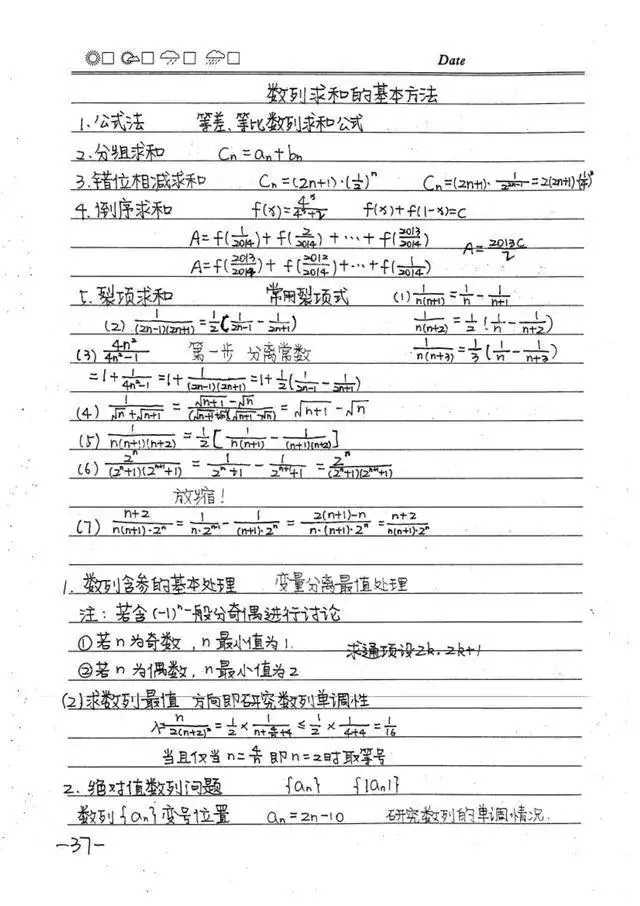 Date
数列求和的基本方法
1.公式法 等差、等比数列求和公式
2.分组求和 Cn=an+bn
3.错位相减求和 Cn=(2n+1)·(1/2)^n Cn=(2n+1)·1/2^(2n-1)=2(2n+1)(1/4)^n
4.倒序求和 f(x)=4^x/(4^x+2) f(x)+f(1-x)=C
A=f(1/2014)+f(2/2014)+…+f(2013/2014)
A=2013C/2
A=f(2013/2014)+f(2012/2014)+…+f(1/2014)
5.裂项求和 常用裂项式 (1) 1/(n(n+1))=1/n-1/(n+1)
(2) 1/((2n-1)(2n+1))=1/2[1/(2n-1)-1/(2n+1)] 1/(n(n+2))=1/2(1/n-1/(n+2))
(3) 4n²/(4n²-1) 第一步 分离常数 1/(n(n+3))=1/3(1/n-1/(n+3))
=1+1/(4n²-1)=1+1/((2n-1)(2n+1))=1+1/2(1/(2n-1)-1/(2n+1))
(4) 1/(√n+√(n+1))=(√(n+1)-√n)/((√(n+1)+√n)(√(n+1)-√n))=√(n+1)-√n
(5) 1/(n(n+1)(n+2))=1/2[1/(n(n+1))-1/((n+1)(n+2))]
(6) 2^n/((2^n+1)(2^(n+1)+1))=1/(2^n+1)-1/(2^(n+1)+1)=2^n/((2^n+1)(2^(n+1)+1))
放缩!
(7) (n+2)/(n(n+1)·2^n)=1/(n·2^(n-1))-1/((n+1)·2^n)=(2(n+1)-n)/(n·(n+1)·2^n)=(n+2)/(n(n+1)·2^n)
1.数列含参的基本处理 变量分离最值处理
注:若含(-1)^n一般分奇偶进行讨论
①若n为奇数,n最小值为1. 求通项设2k,2k+1
②若n为偶数,n最小值为2
(2)求数列最值 方向即研究数列单调性
λ=n/(2(n+2)²)=1/2×1/(n+4/n+4)≤1/2×1/(4+4)=1/16
当且仅当n=4/n即n=2时取等号
2.绝对值数列问题 {an} {|an|}
数列{an}变号位置 an=2n-10 研究数列的单调情况.
-37-